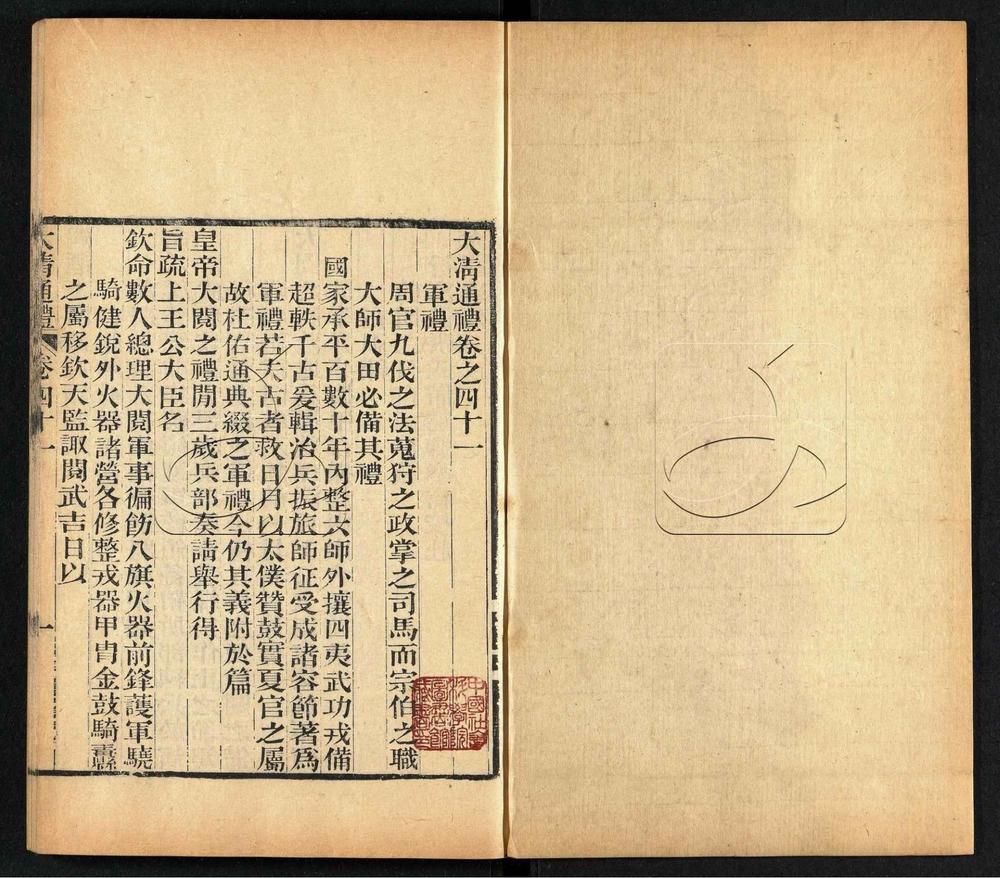 大清通禮卷之四十一
軍禮
周官九伐之法蒐狩之政掌之司馬而宗伯之職
大師大田必備其禮
國家承平百數十年內整六師外攘四夷武功戎備
超軼千古爰輯治兵振旅師征受成諸容節著為
軍禮若夫古者救日月以太僕贊鼓實夏官之屬
故杜佑通典綴之軍禮今仍其義附於篇
皇帝大閱之禮閒三歲兵部奏請舉行得
旨疏上王公大臣名
欽命數人總理大閱軍事徧飭八旗火器前鋒護軍驍
騎健銳外火器諸營各修整戎器甲冑金鼓騎纛
之屬移欽天監諏閱武吉日以
大清通禮 卷四十一 一